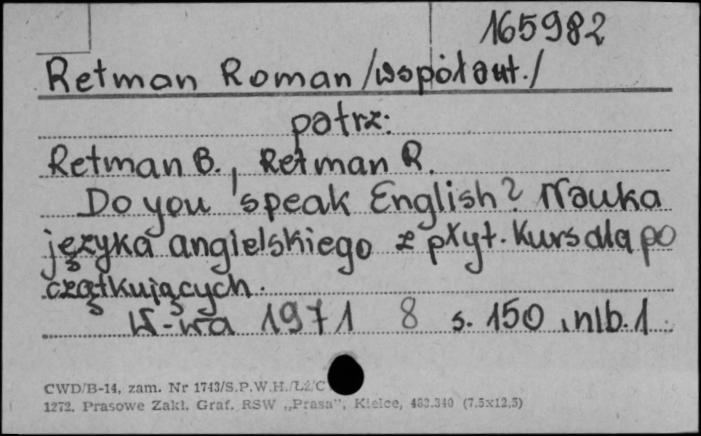 165982
Retman Roman /współaut./
patrz:
Retman B., Retman R.
Do you speak English? Nauka
języka angielskiego z płyt. Kurs dla po
czątkujących.
W-wa 1971 8 s. 150, nlb. 1.
CWD/B-14, zam. Nr 1743/S.P.W.H./Lż/C
1272. Prasowe Zakł. Graf. RSW „Prasa", Kielce, 483.340 (7,5x12,5)